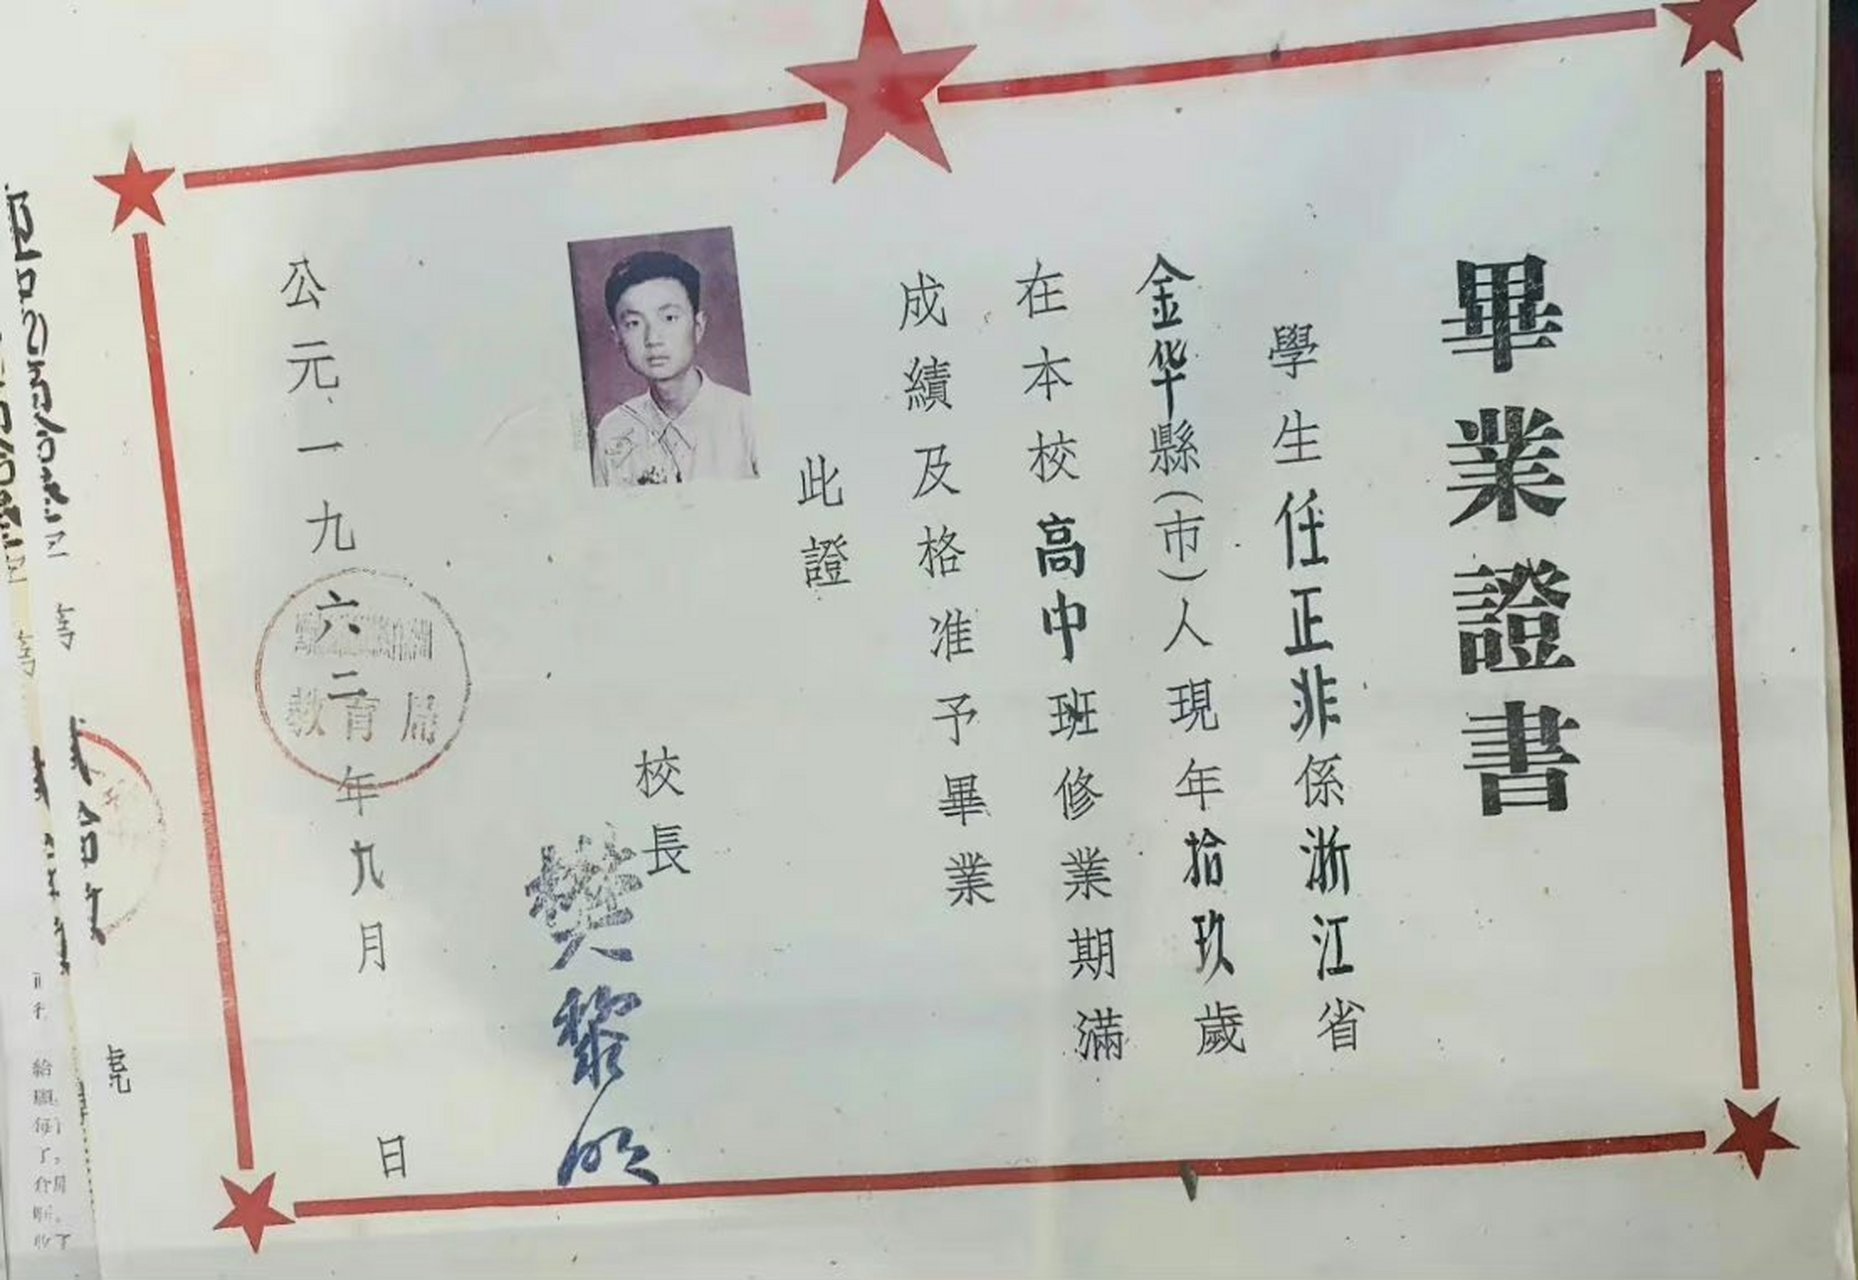 畢業證書
學生任正非係浙江省
金华縣(市)人現年拾玖歲
在本校高中班修業期滿
成績及格准予畢業
此證
校長
樊黎明
公元一九六二年九月 日
教育局
號